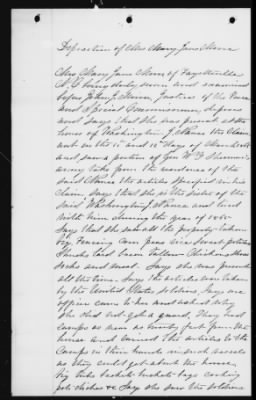 Deposition of Mrs Mary Jane Moore
Mrs Mary Jane Moore of Fayetteville
N.C. being duly sworn and examined
before John J. Minor, Justice of the Peace
and Special Commissioner, deposes
and says that she was present at the
house of Washington J. the Claim
ant on the 11 and 12 days of March 1865
and saw a portion of Gen W T Sherman's
army take from the residence of the
said the articles specified in his
claim. Says that she is the sister of the
said Washington J. and lived
with him during the year of 1865.
Says that she saw all the property taken
viz Fencing Corn peas rice sweet potatoes
Shucks lard bacon Tallow Chickens
ducks and meat. Says she was present
all the time. Says the articles were taken
by the United States Soldiers. Says an
officer came to her and asked why
she did not get a guard. They had
camps as near as twenty feet from the
house and carried the articles to the
camps in their hands in such vessels
as they could get about the house,
viz tubs baskets buckets bags cooking
pots dishes &c Says she saw the soldiers